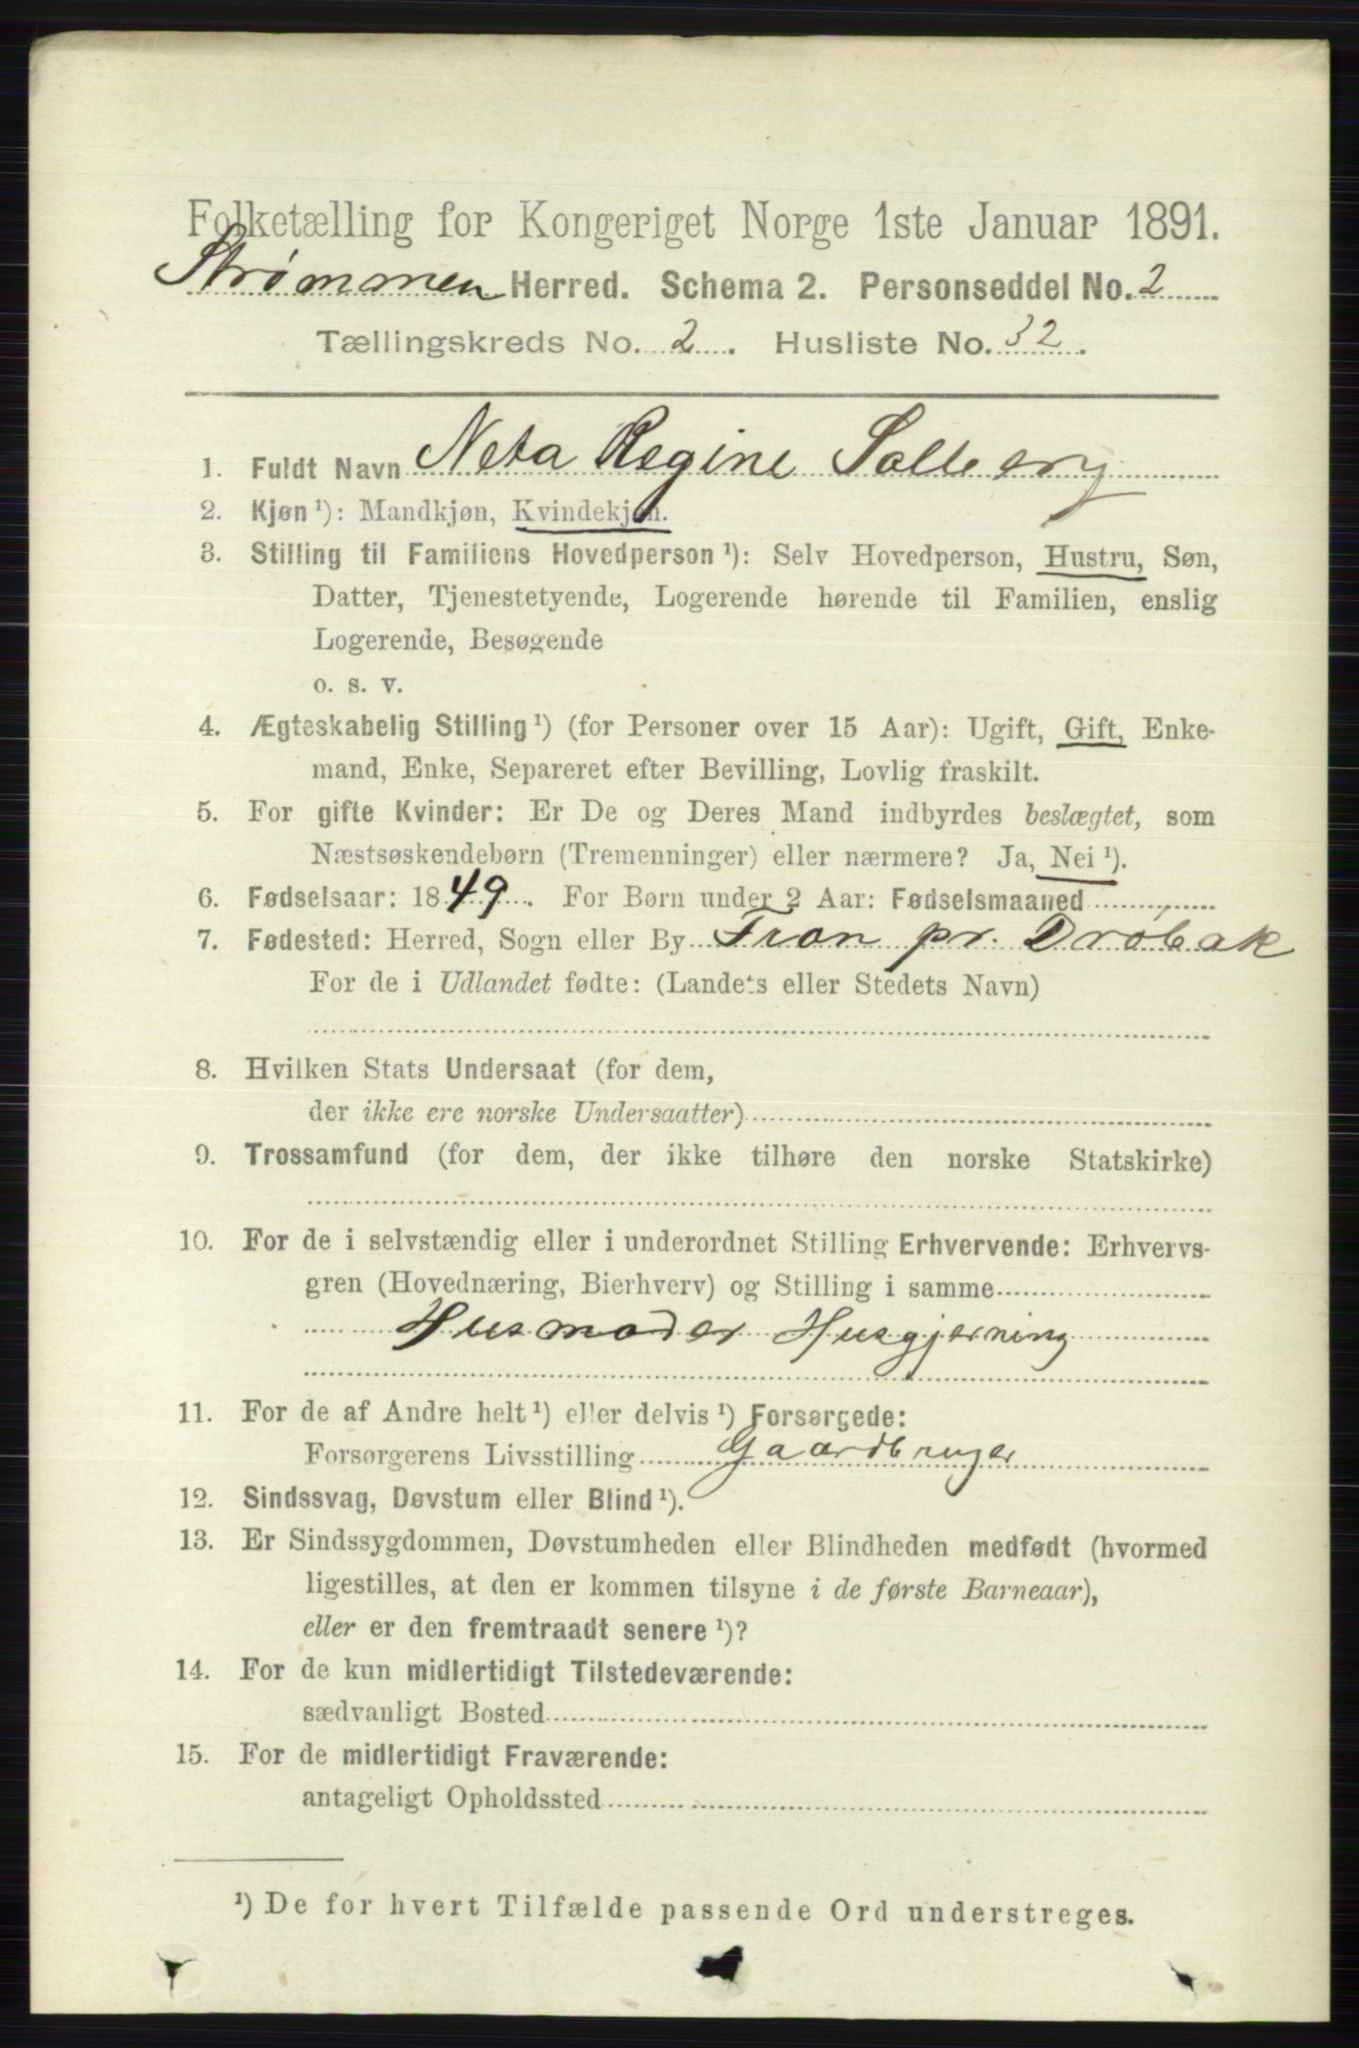 Folketælling for Kongeriget Norge 1ste Januar 1891.
Strømmen Herred. Schema 2. Personseddel No. 2
Tællingskreds No. 2. Husliste No. 32.
1. Fuldt Navn Neta Regine Solberg
2. Kjøn ¹): Mandkjøn, Kvindekjøn.
3. Stilling til Familiens Hovedperson ¹): Selv Hovedperson, Hustru, Søn,
Datter, Tjenestetyende, Logerende hørende til Familien, enslig
Logerende, Besøgende
o. s. v.
4. Ægteskabelig Stilling ¹) (for Personer over 15 Aar): Ugift, Gift, Enke-
mand, Enke, Separeret efter Bevilling, Lovlig fraskilt.
5. For gifte Kvinder: Er De og Deres Mand indbyrdes beslægtet, som
Næstsøskendebørn (Tremenninger) eller nærmere? Ja, Nei ¹).
6. Fødselsaar: 1849. For Børn under 2 Aar: Fødselsmaaned
7. Fødested: Herred, Sogn eller By Fron pr. Drøbak
For de i Udlandet fødte: (Landets eller Stedets Navn)
8. Hvilken Stats Undersaat (for dem,
der ikke ere norske Undersaatter)
9. Trossamfund (for dem, der ikke tilhøre den norske Statskirke)
10. For de i selvstændig eller i underordnet Stilling Erhvervende: Erhvervs-
gren (Hovednæring, Bierhverv) og Stilling i samme
Husmoder Husgjerning
11. For de af Andre helt ¹) eller delvis ¹) Forsørgede:
Forsørgerens Livsstilling Gaardbruger
12. Sindssvag, Døvstum eller Blind ¹).
13. Er Sindssygdommen, Døvstumheden eller Blindheden medfødt (hvormed
ligestilles, at den er kommen tilsyne i de første Barneaar),
eller er den fremtraadt senere ¹)?
14. For de kun midlertidigt Tilstedeværende:
sædvanligt Bosted
15. For de midlertidigt Fraværende:
antageligt Opholdssted
¹) De for hvert Tilfælde passende Ord understreges.